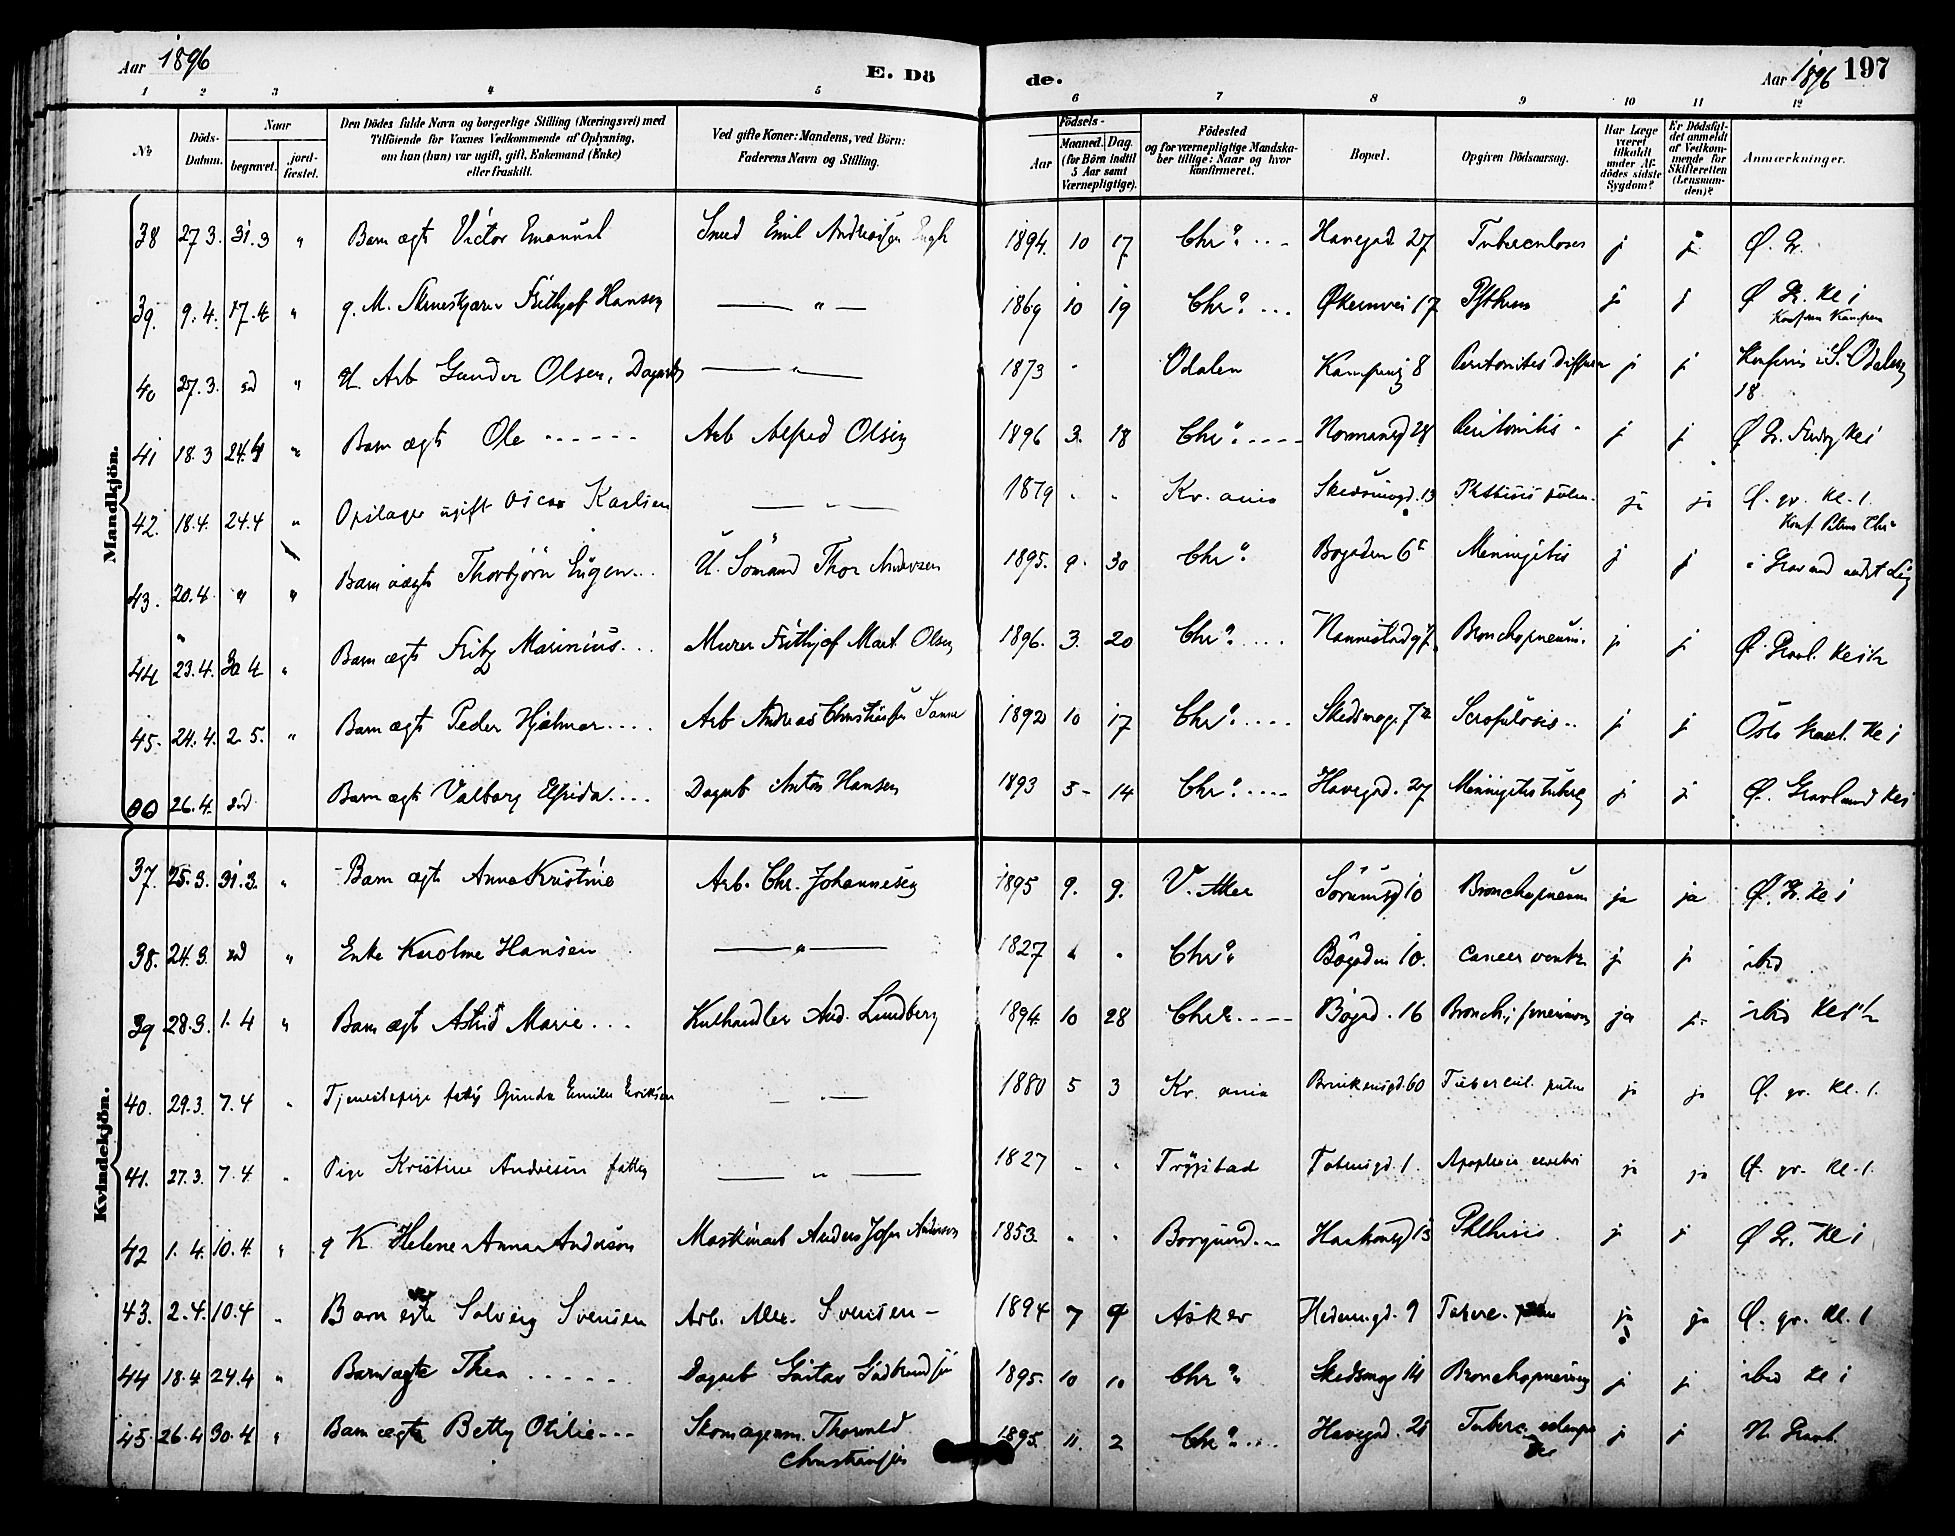 Aar 1896
E. Dö
de.
Aar 1896 197
1 2 3 4 5 6 7 8 9 10 11 12
No
Döds-Datum.
Naar
begravet. jordfæstet.
Den Dödes fulde Navn og borgerlige Stilling (Næringsvei) med
Tilföiende for Voxnes Vedkommende af Oplysning,
om han (hun) var ugift, gift, Enkemand (Enke)
eller fraskilt.
Ved gifte Koner: Mandens, ved Börn:
Faderens Navn og Stilling.
Födsels-
Aar Maaned. Dag.
(for Börn indtil 5 Aar samt Værnepligtige).
Födested
og for værnepligtige Mandskaber tillige: Naar og hvor konfirmeret.
Bopæl.
Opgiven Dödsaarsag.
Har Læge været tilkaldt under Afdödes sidste Sygdom?
Er Dödsfaldet anmeldt af Vedkommende for Skifteretten (Lensmanden)?
Anmærkninger.
Mandkjön.
38 27 3. 31.3 " Barn ægt Victor Emanuel Smed Emil Andreasen Engh 1894. 10 17 Chr.a Havegad 27 Tuberculoses j j Ø. Gr.
39. 9. 4. 17.4 " g. M. Frithjof Hansen — " — 1869 10 19 Chr.a Økernvei 17 j j Ø Gr. Kl i
Konf. Kampen
40 27.3. " U. Arb Gunder Olsen, — " — 1873 " Odalen Kampeng 8 Peritonites j j Konfirm i S. Odalen
18
41 18.3 24.4 " Barn ægt Ole Arb Alfred Olsen 1896 3. 18 Chr.a Normansgd 28 Peritonitis j j Ø Gr. Kl i
42. 18.4. 24.4 " ugift Oscar Karlsen — " — 1879 " " Kr. ania Skedsmogd. 13 Phthisis pulm. ja ja Ø. gr. Kl. 1.
43. 20.4 " " Barn uægt Thorbjörn Eugen U. Sömand Thor Andersen 1895. 9. 30 Chr.a Bögaden 6 Meningitis j j i Grav med andet Lig
44 23.4. 30 4 " Barn ægt Fritz Marinius Murer Frithjof Mart Olsen 1896. 3. 20 Chr.a Nannestadgd Bronchopneum. j j Ø. Gravl. Kl
45. 24.4. 2.5. " Barn ægt Peder Hjalmar Arb Andreas Christiansen 1892 10 17 Chr.a Skedsmog. 7 Scrofulosis j j Oslo Gravl. Kl i
26.4. Barn ægt Valborg Elfrida Dagarb Anton Hansen 1893 5 14 Chr.a Havegad. 27 Meningitis tuberk j j Ø. Gravlund Kl i
Kvindekjön.
37. 25.3. 31.3. " Barn ægt Anna Kristine Arb. Chr. Johannesen 1895 9. 9. V. Aker Sörumsgd 10 Bronchopneum ja ja Ø. Gr. Kl i
38. 24.3. " Enke Karoline Hansen — " — 1827 " " Chr.a Bögaden 10. Cancer ventr. j j ibid
39 28.3. 1.4 " Barn ægt Astrid Marie Kulhandler And. Lundberg 1894 10 28 Chr.a Bögad. 16 ja j ibid
40. 29.3. 7.4 " Tjenestepige Gunda Emilie Eriksen — " — 1880 5 3 Kr. ania 60 Tubercul. pulm ja ja Ø. gr. Kl. 1.
41. 27.3. 7.4 " Pige Kristine Andresen — " — 1827 " " Trögstad Totensgd. 1. Apoplexia cerebri ja ja Ø. gr. Kl. 1.
42 1.4. 10.4. " g K. Helene Anna Anderson Maskinarb Anders Andersen 1853. " " Borgund Haakonsgd 13 Phthisis. j j Ø Gr. Kl i
43. 2.4. 10.4 " Barn ægte Solveig Svensen Arb. Alex. Svensen 1894 7 9 Asker Hedemgd. 9 Tuberc. ja ja Ø. gr. Kl. 1
44 18.4. 24.4 " Barn ægte Thea Dagarb Gustav 1895. 10 10 Chr.a Skedsmog 14 Bronchopneumoni j j ibid Kl i
45. 26.4 30.4 " Barn ægte Betty Otilie Skomagerm. Thorvald
Christiansen 1895 11. 2 Chr.a Havegad. 21 Tuberc. j j N. Gravl.